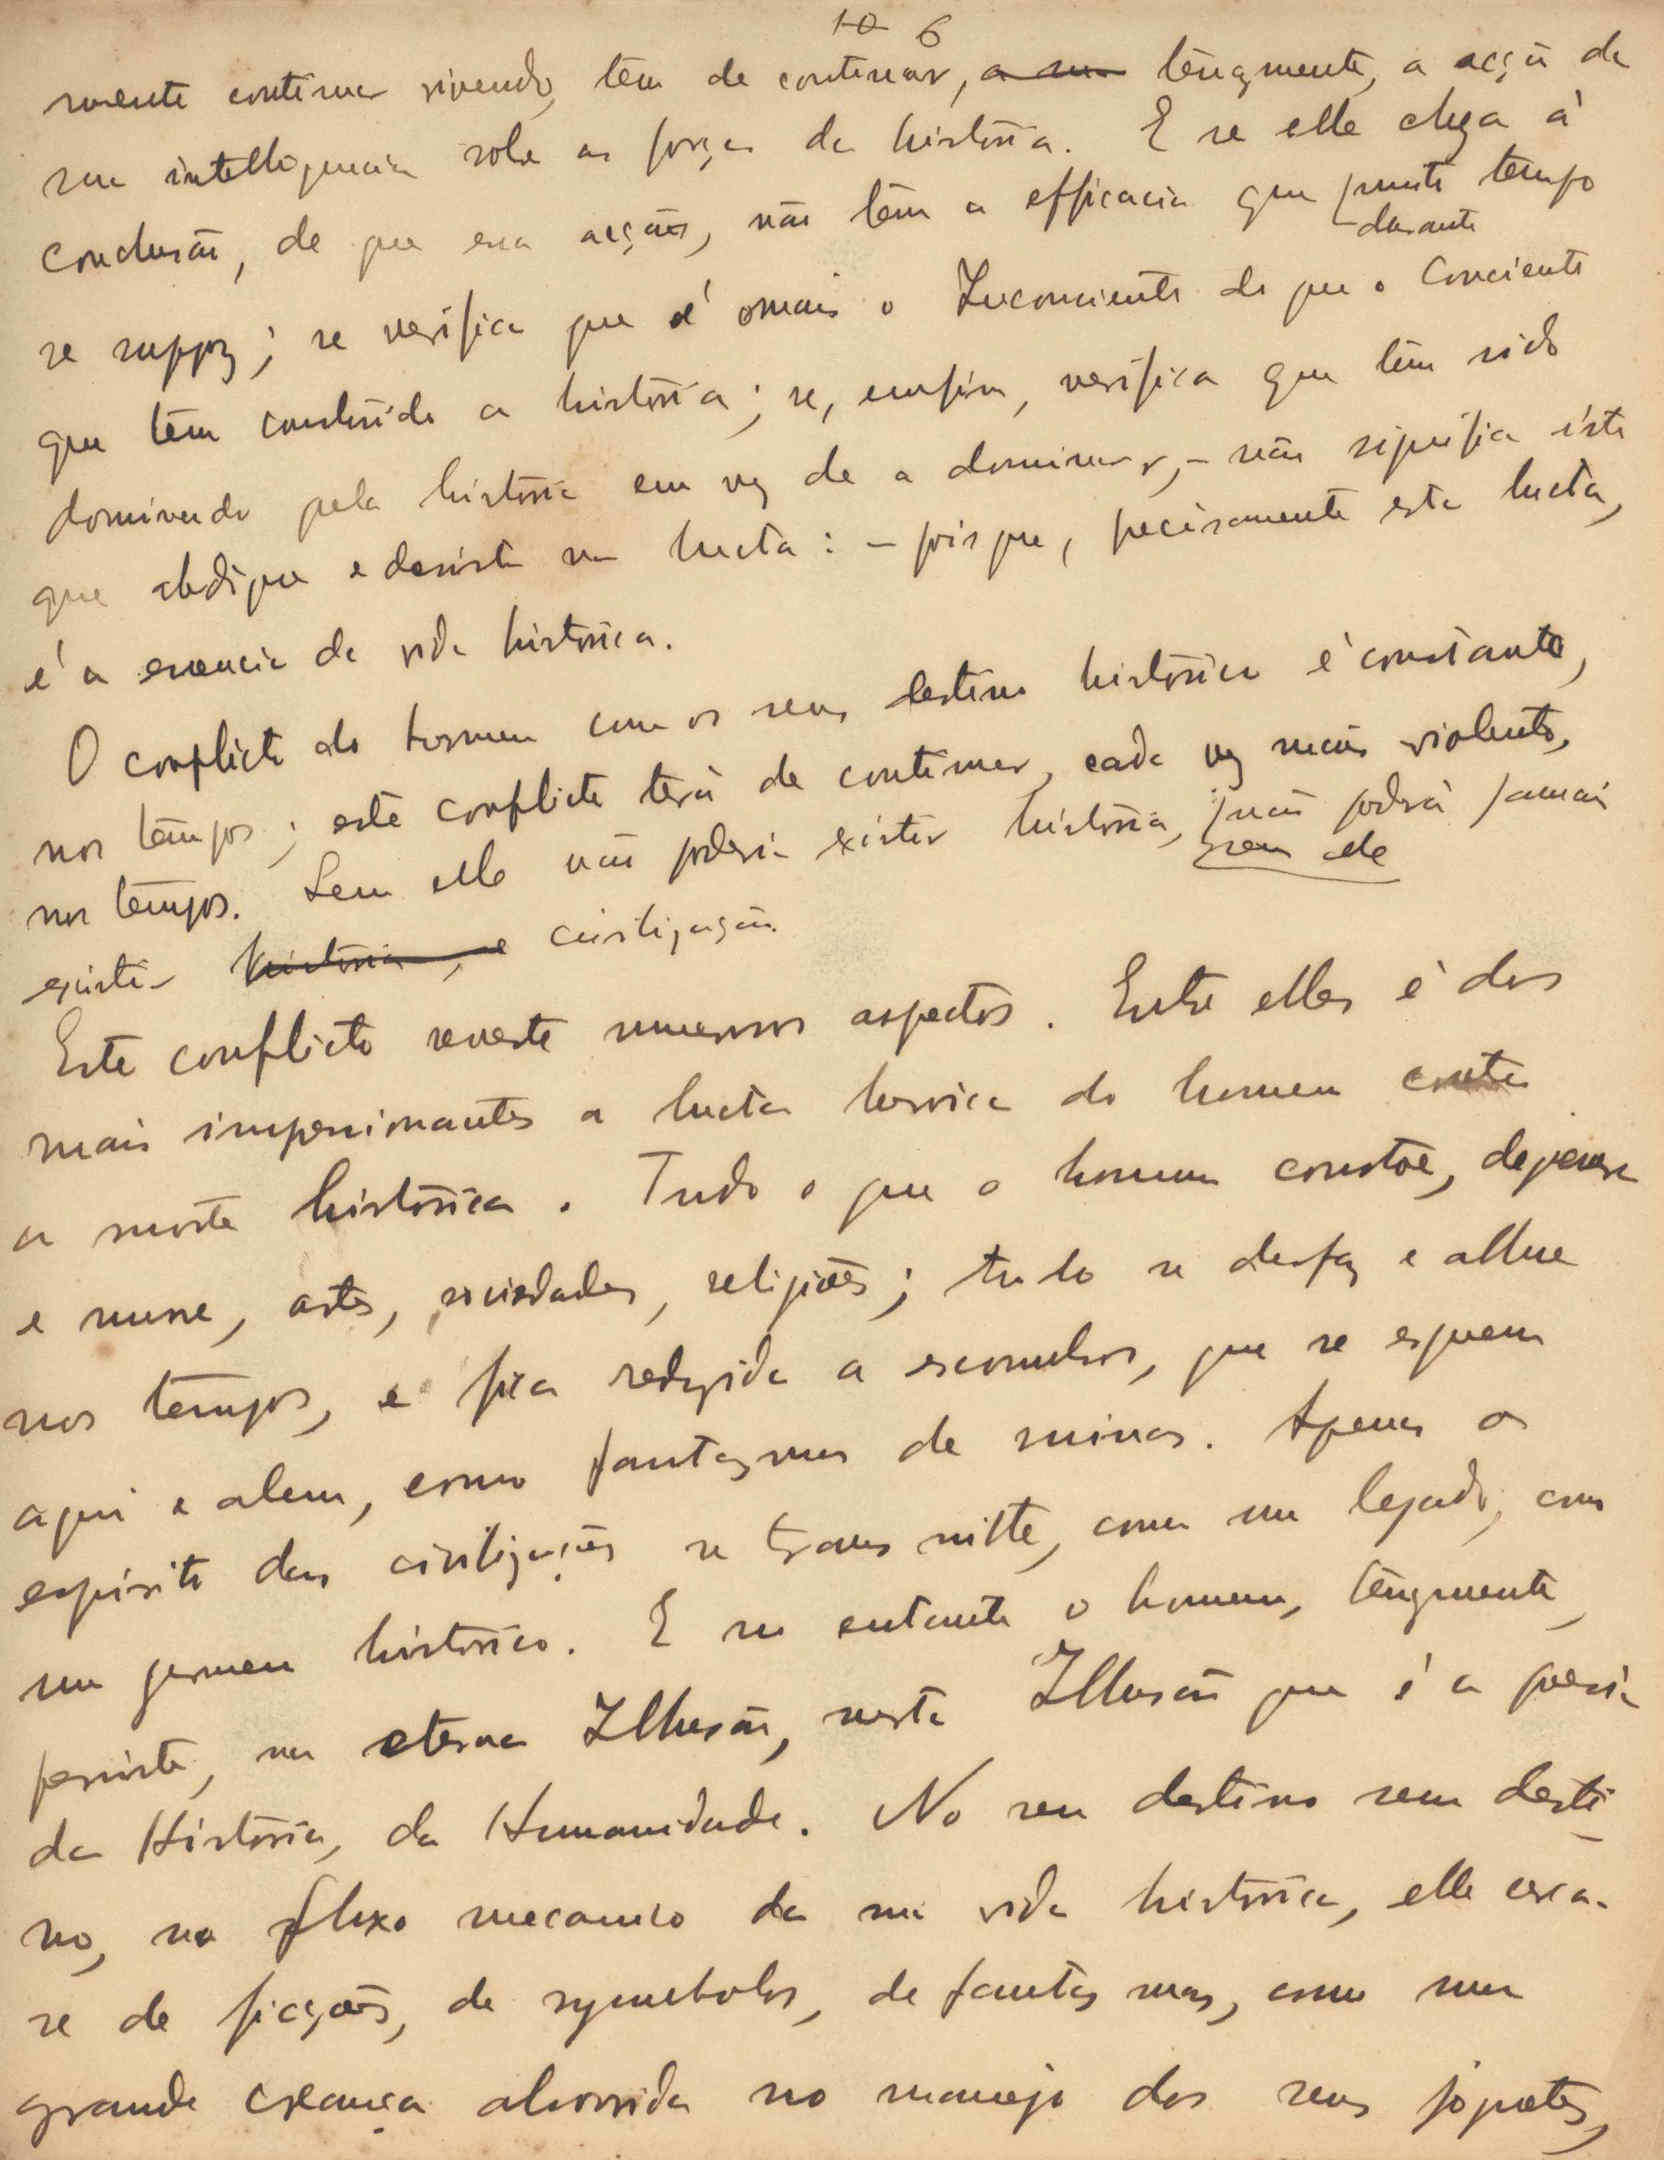 10 6
mente continua vivendo, têm de continuar, a sua tenazmente, a acção da
sua intelligencia sobre as forças da historia. E se elle chega á
conclusão, de que essa acção, não têm a efficacia que muito tempo
durante
se suppoz; se verifica que é mais o Inconsciente do que o Conciente
que têm construido a historia; se, emfim, verifica que têm sido
dominado pela historia em vez de a dominar, – não significa isto
que abdique e desista na lucta: – pois que, precisamente esta lucta,
é a essencia da vida historica.
O conflicto do homem com os seus destino historico é constante,
nos tempos; este conflicto terá de continuar, cada vez mais violento,
nos tempos. Sem elle não poderia existir historia, não poderá jamais
sem elle
existir historia, e civilização.
Este conflicto reveste numerosos aspectos. Entre elles é dos
mais impressionantes a lucta heroica do homem contra
a morte historica. Tudo o que o homem constroe, deperece
e morre, artes, sociedades, religiões; tudo se desfaz e allue
nos tempos, e fica reduzida a escombros, que se erguem
aqui e alem, como fantasmas de ruinas. Apenas o
espirito das civilizações se transmitte, como um legado, como
um germen historico. E no entanto o homem, tenazmente,
persiste, na eterna Illusão, nesta Illusão que é a poesia
da Historia, da Humanidade. No seu destino sem desti-
no, no fluxo mecanico da sua vida historica, elle cerca-
se de ficções, de symbolos, de fantasmas, como uma
grande creança absorvida no manejo dos seus joguetes,